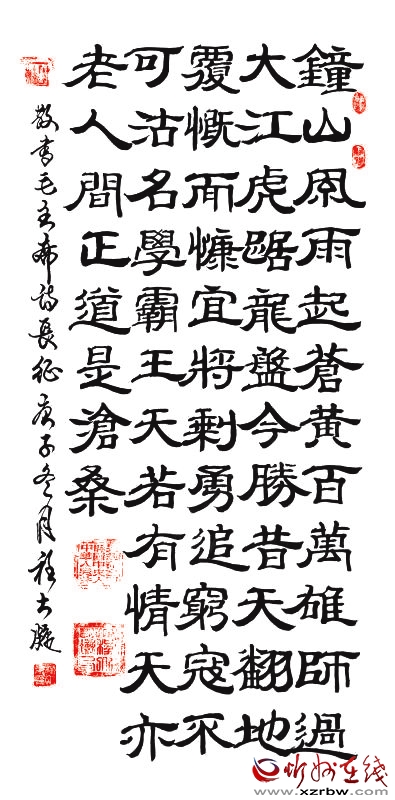 鐘山風雨起蒼黃百萬雄師過
大江虎踞龍盤今勝昔天翻地
覆慨而慷宜將剩勇追窮寇不
可沽名學霸王天若有情天亦
老人間正道是滄桑
敬書毛主席詩長征庚子冬月
忻州在线
www.xzrbw.com